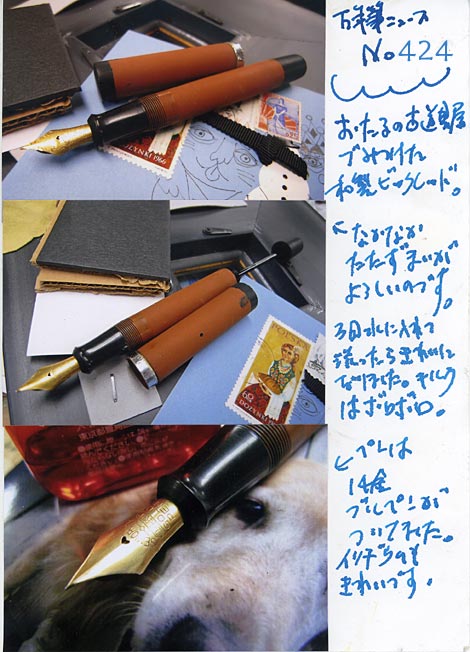 万年筆ニュース
No 424
おたるの古道具屋
でみつけた
和製ビックレッド。
←なかなか
たたずまいが
よろしいのです。
3日水に入れて
洗ったらきれいに
なりました。コルク
はボロボロ。
←ペンは
14金
ついてました。
イリヂウムも
きれいです。